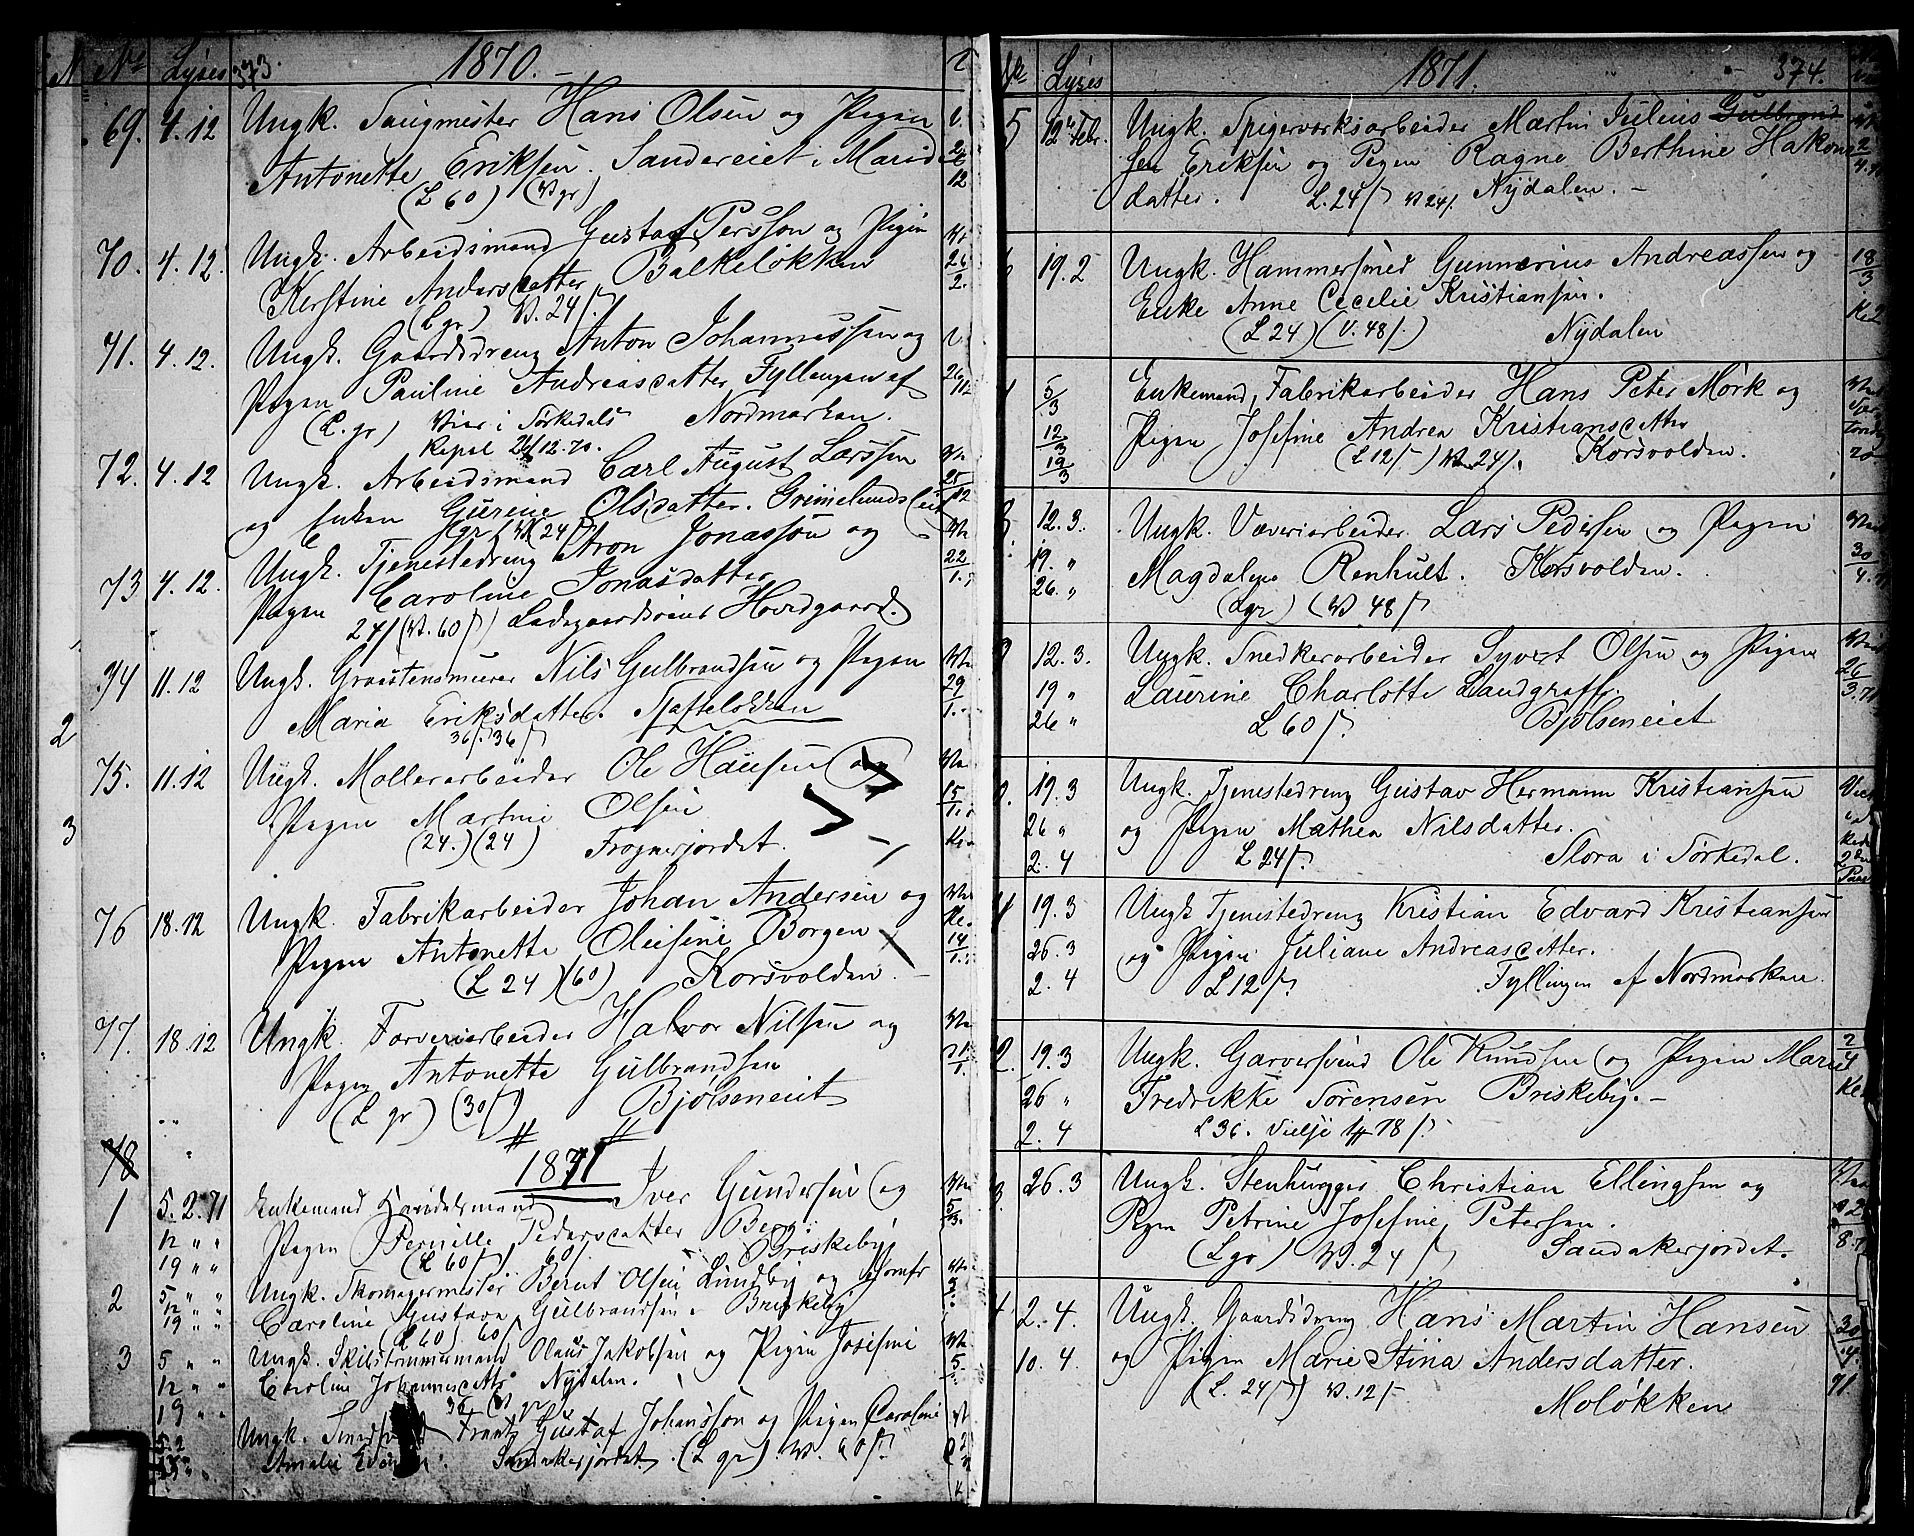 No Lyses 373. 1870.
69. 4.12 Ungk. Saugmester Hans Olsen og Pigen
Antonette Eriksen. Sandereiet i Marid
(L 60) (V gr)
70. 4.12. Ungk. Arbeidsmand Gustaf Persson og Pigen
Kerstine Andersdatter Balkeløkken
(L gr) V. 24/
71. 4.12. Ungk. Gaardsdreng Anton Johannessen og
Pigen Pauline Andreasdatter Fyllingen af
(L. gr) Viet i Sørkedals Nordmarken.
Kapel 26/12.70.
72. 4.12 Ungk. Arbeidsmand Carl August Larssen
og Enken Gurine Olsdatter. Grimelundseiet
gr V 24
73 4.12. Ungk. Tjenestedreng Aron Jonasson og
Pigen Caroline Jonasdatter
24/ (V. 60/) Ladegaardsøens Hovedgaard.
74 11.12 Ungk. Graastensmurer Nils Gulbrandsen og Pigen
Maria Eriksdatter.
36/. 36/
75. 11.12 Ungk. Møllerarbeider Ole Hansen og
Pigen Martine Olsen
(24.) (24) Frognerjordet.
76 18.12 Ungk. Fabrikarbeider Johan Andersen og
Pigen Antonette Oleisine Borgen
(L 24) (60) Korsvolden.
77. 18.12 Ungk. Farveriarbeider Halvor Nilsen og
Pigen Antonette Gulbrandsen
(L gr) (30/) Bjølseneiet
78
1871
1 5.2.71 Enkemand Handelsmand Iver Gundersen og
12 " " Pigen Pernille Pedersdatter Berg
19 " " (L 60/) 60/ Briskeby
2 5 " " Ungk. Skomagermester Bernt Olsen Lundby og Jomfr
12 " "
19 " " Caroline Gustava Gulbrandsen. Briskeby
(L 60) 60/
3 5 " " Ungk. Skilstømmemand Olaus Jakobsen og Pigen Josefine
12 " " Caroline Johannesdattr Nydalen.
19 " " 36 (V gr)
5.2 Ungk. Smedsvend Frants Gustaf Johansson og Pigen Caroline
Amalie Sandakerjordet. (L gr). V. 60/.
Lyses 1871. 374.
5 12te Febr. Ungk. Spigerverksarbeider Martin Julius Gulbrand
sen Eriksen og Pigen Ragne Berthine Hakons
datter. L. 24/ V 24/. Nydalen.
6 19.2 Ungk. Hammersmed Gunnerius Andreassen og
Enke Anne Cecelie Kristiansen.
(L 24) (V. 48/.) Nydalen
18/3
5/3 Enkemand, Fabrikarbeider Hans Peter Mørk og
12/3 Pigen Josefine Andrea Kristiansdattr
19/3 (L 12/) V 24/. Korsvolden.
12.3. Ungk. Væveriarbeider Lars Pedersen og Pigen
19. " Magdalene Renhult. Korsvolden.
26. " (L gr) (V 48/)
12.3. Ungk. Snedkerarbeider Syvert Olsen og Pigen
19 " Laurine Charlotte Landgraff.
26 " L 60/. Bjølseneiet
19.3 Ungk. Tjenestedreng Gustav Hermann Kristiansen
26 " og Pigen Mathea Nilsdatter.
2.4 L 24/. Slora i Sørkedal.
19.3 Ungk Tjenestedreng Kristian Edvard Kristiansen
26.3 og Pigen Juliane Andreasdatter.
2.4 L 12/. Fyllingen af Nordmarken.
2. 19.3 Ungk. Garversvend Ole Knudsen og Pigen Marie
26 " Fredrikke Sørensen Briskeby.
2.4 L 36. Vielse 78/.
3. 26.3 Ungk. Stenhugger Christian Ellingsen og
Pigen Petrine Josefine Petersen.
(L gr) V. 24/ Sandakerjordet.
4. 2.4. Ungk. Gaardsdreng Hans Martin Hansen
10.4. og Pigen Marie Stina Andersdatter.
(L. 24/) V. 12/ Moløkken